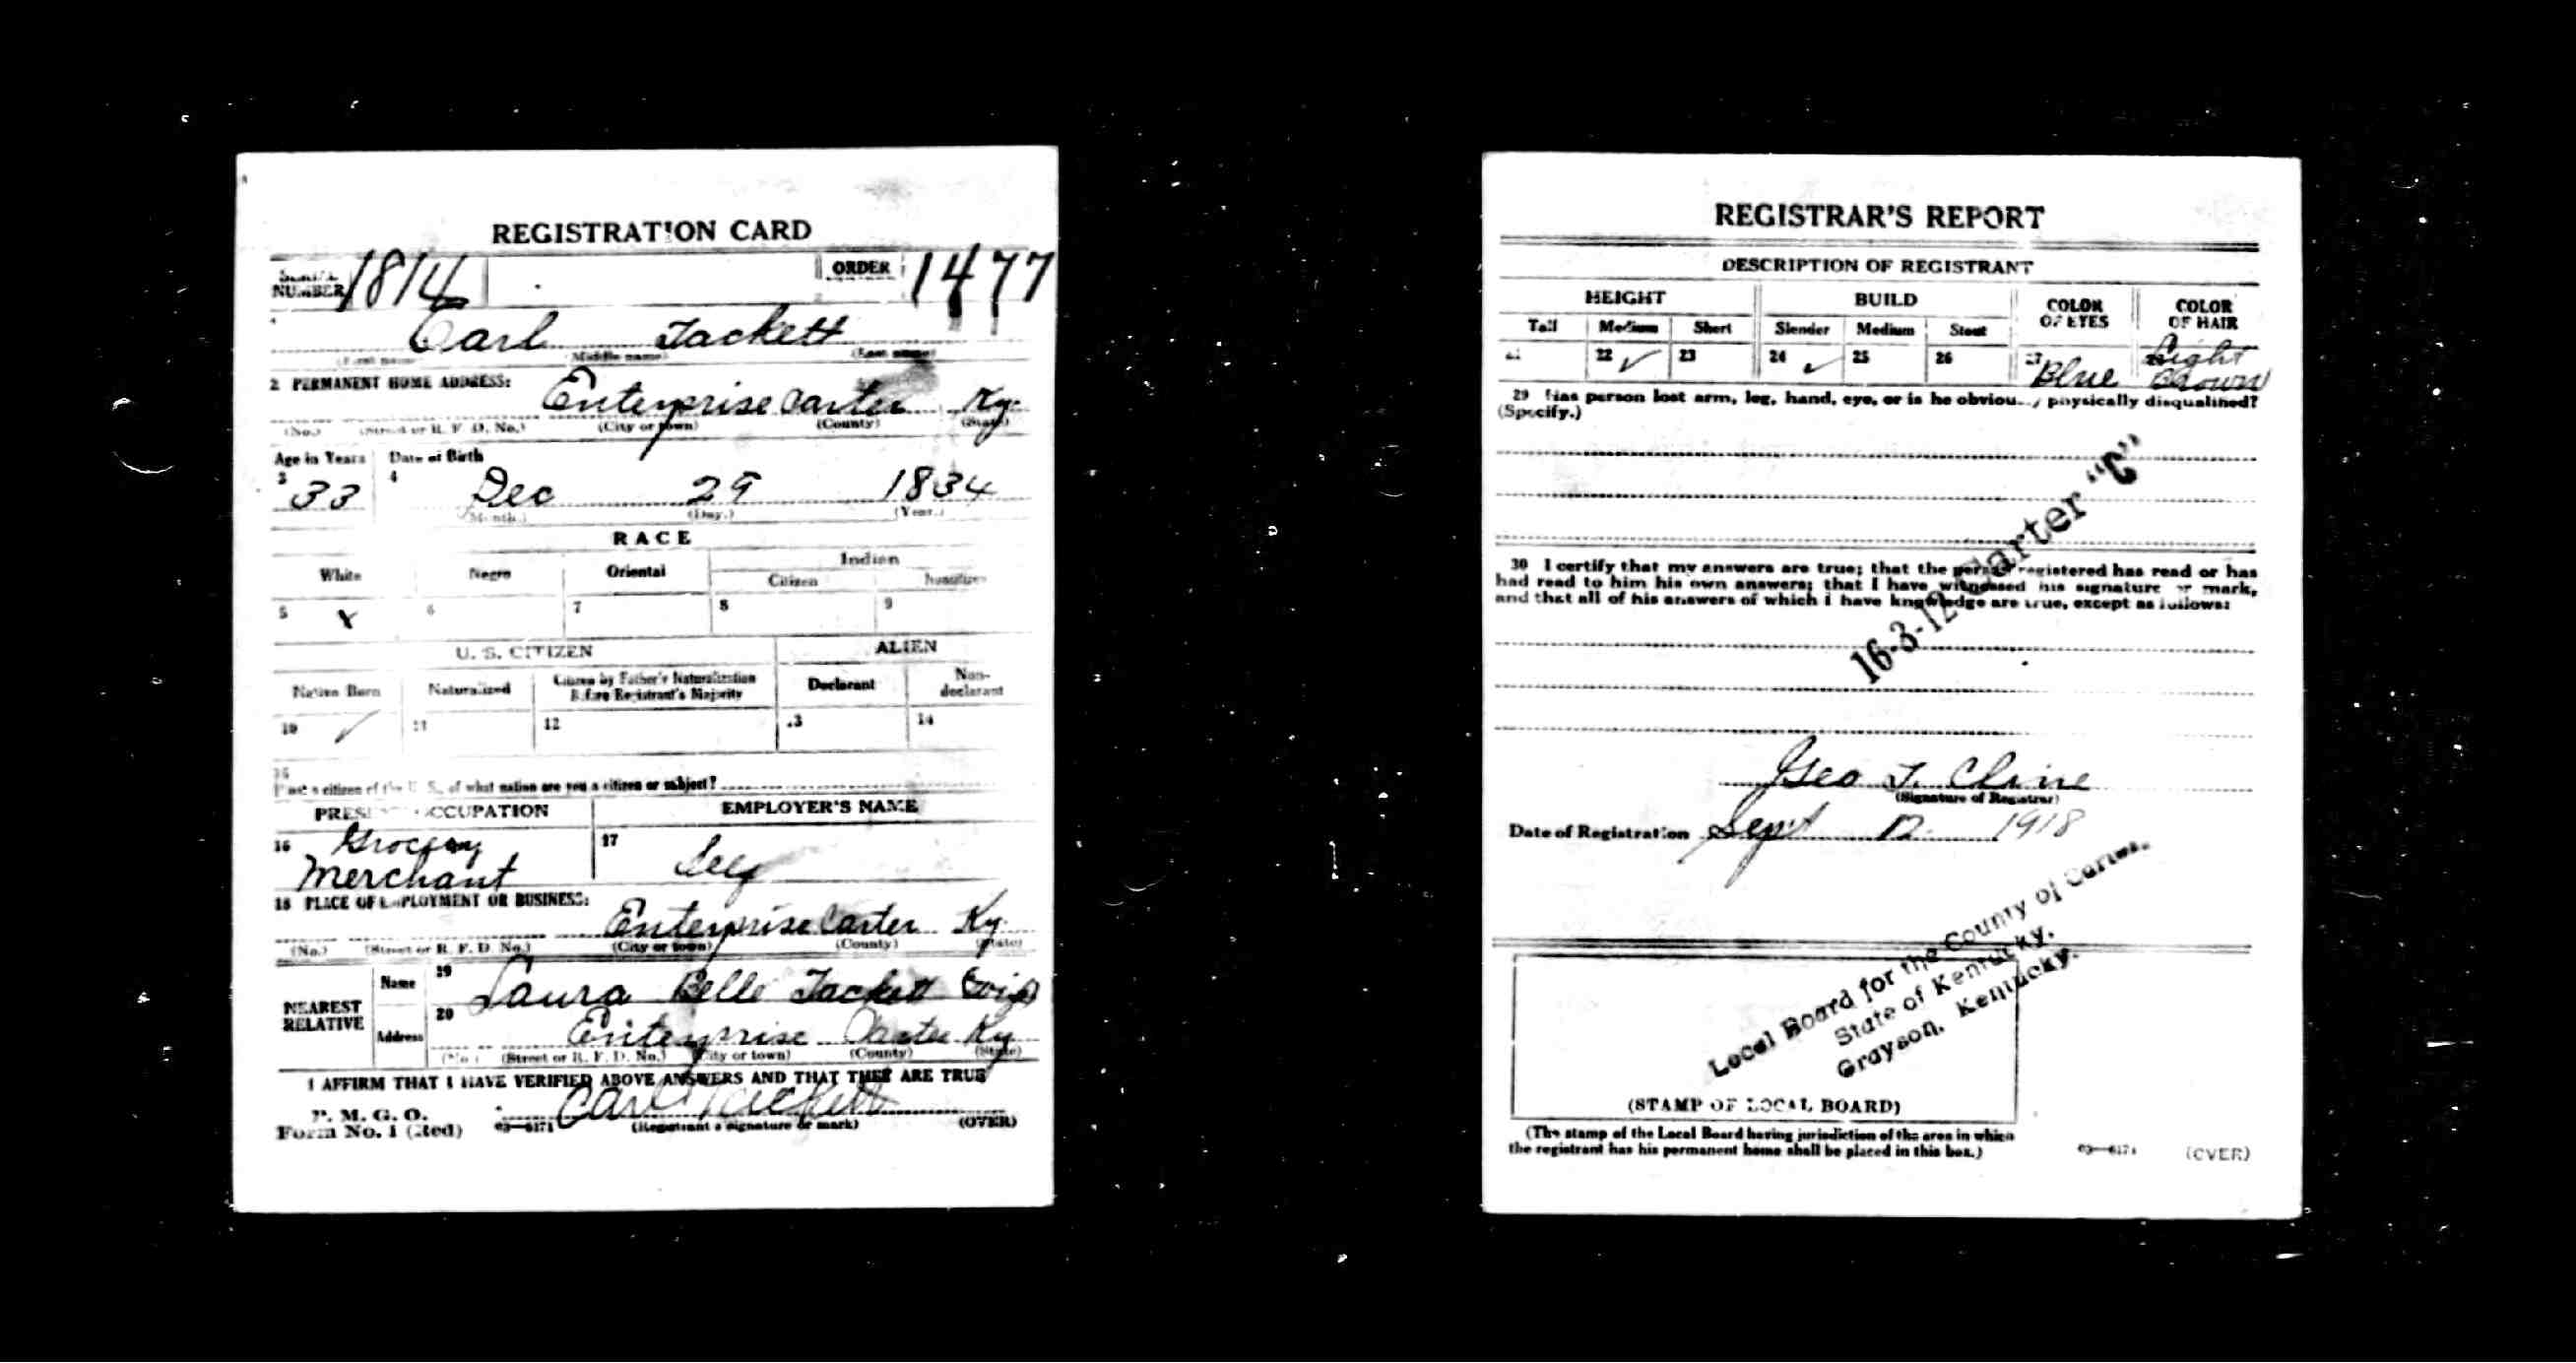 REGISTRATION CARD
SERIAL NUMBER 1814 ORDER 1477
Carl Tackett
(First name) (Middle name) (Last name)
2 PERMANENT HOME ADDRESS:
Enterprise Carter Ky.
(No.) (Street or R. F. D. No.) (City or town) (County) (State)
Age in Years Date of Birth
3 33 4 Dec 29 1834
(Month.) (Day.) (Year.)
RACE
White Negro Oriental Indian
Citizen Noncitizen
5 X 6 7 8 9
U. S. CITIZEN ALIEN
Native Born Naturalized Citizen by Father's Naturalization Before Registrant's Majority Declarant Non-declarant
10 ✓ 11 12 13 14
15
If not a citizen of the U. S., of what nation are you a citizen or subject?
PRESENT OCCUPATION EMPLOYER'S NAME
16 Grocery 17
Merchant Self
18 PLACE OF EMPLOYMENT OR BUSINESS:
Enterprise Carter Ky.
(No.) (Street or R. F. D. No.) (City or town) (County) (State)
NEAREST RELATIVE Name 19 Laura Belle Tackett
Address 20 Enterprise Carter Ky
(No.) (Street or R. F. D. No.) (City or town) (County) (State)
I AFFIRM THAT I HAVE VERIFIED ABOVE ANSWERS AND THAT THEY ARE TRUE
P. M. G. O.
Form No. 1 (Red) 03—6171 Carl Tackett
(Registrant's signature or mark) (OVER)
REGISTRAR'S REPORT
DESCRIPTION OF REGISTRANT
HEIGHT BUILD COLOR OF EYES COLOR OF HAIR
Tall Medium Short Slender Medium Stout
21 22 ✓ 23 24 ✓ 25 26 27 Blue Light Brown
29 Has person lost arm, leg, hand, eye, or is he obviously physically disqualified?
(Specify.)
30 I certify that my answers are true; that the person registered has read or has
had read to him his own answers; that I have witnessed his signature or mark,
and that all of his answers of which I have knowledge are true, except as follows:
16-3-12 Carter "C"
Geo T.
(Signature of Registrar)
Date of Registration Sept 12 1918
Local Board for the County of Carter,
State of Kentucky.
Grayson, Kentucky.
(STAMP OF LOCAL BOARD)
(The stamp of the Local Board having jurisdiction of the area in which
the registrant has his permanent home shall be placed in this box.)
03—6171 (OVER)